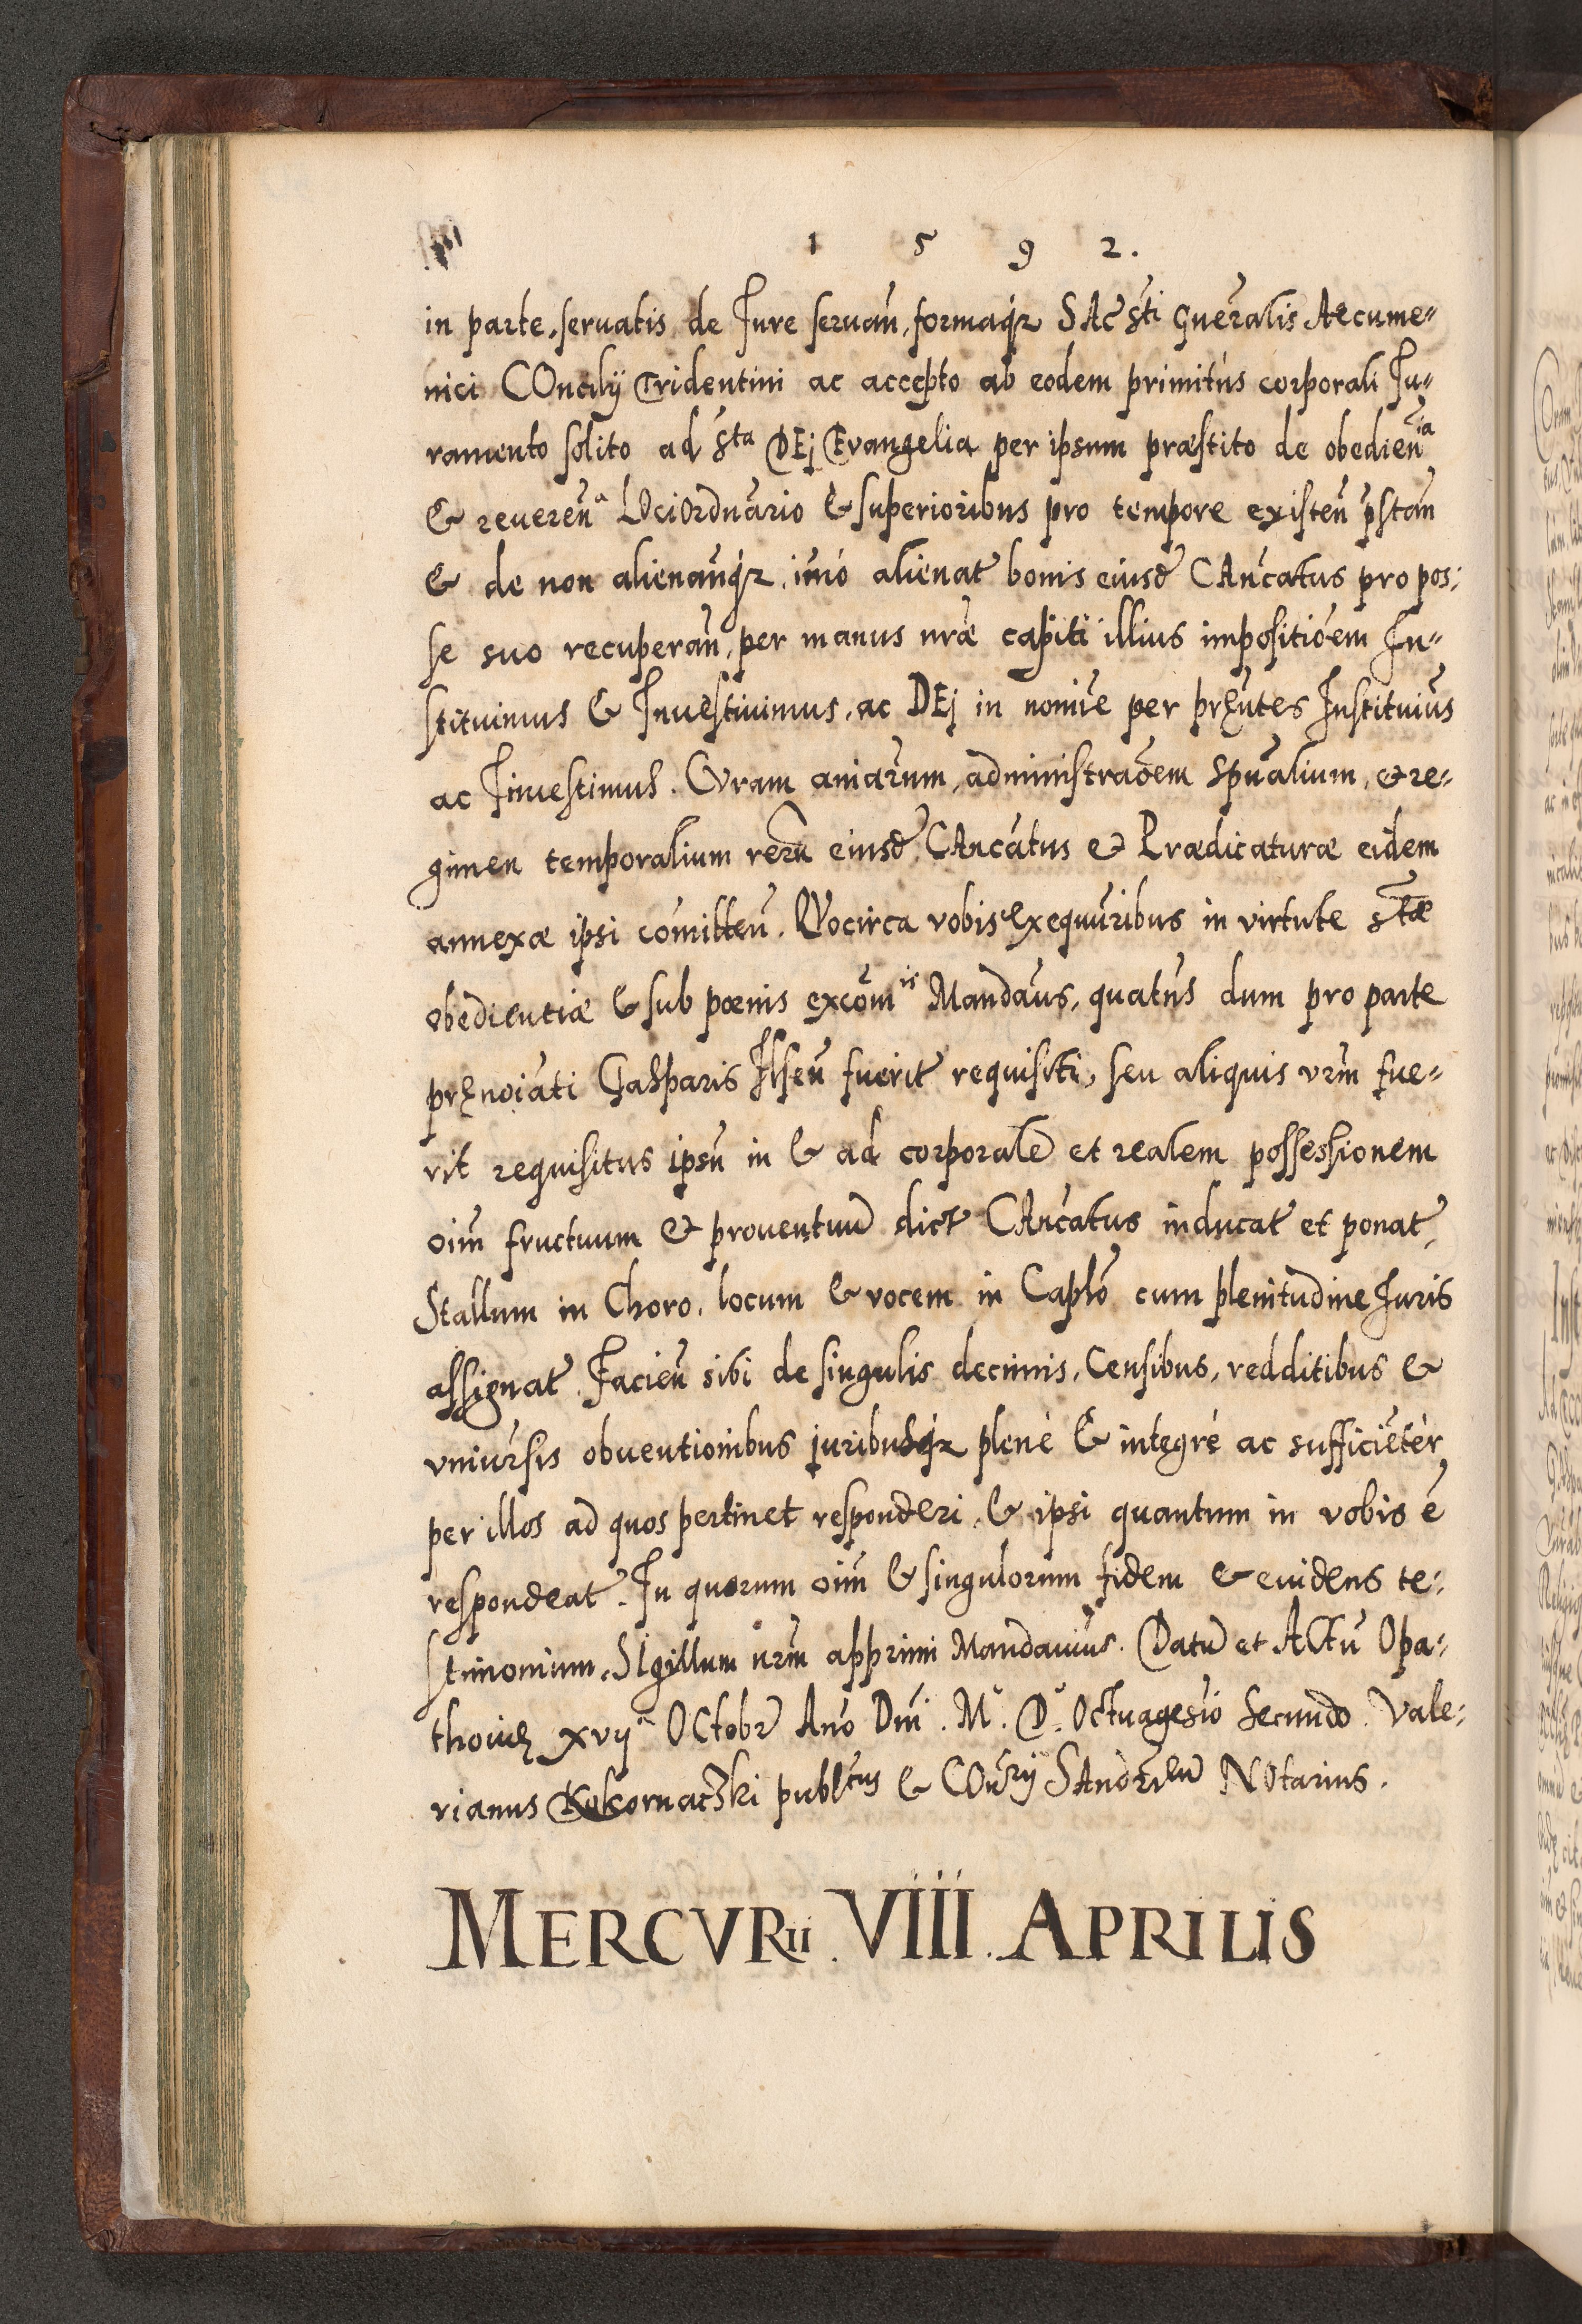 1 5 9 2.
in parte, seruatis de Jure seruañ, formaq́z SAc̃ Sti gñeralis Aecume„
nici COncilij Tridentini ac accepto ab eodem primitus corporali Ju„
ramento solito ad Sta DEj Evangelia per ipsum præstito de obedieñia
& revereña LOci Ordñario & superioribus pro tempore existeñ p̃stañ
& de non alienañq́z, imó alienat̃ bonis eiusd̃ CAnc̃atus pro pos:
se suo recuperañ, per manus nr̃æ capiti illius impositiõem In„
stituimus & Inuestiuimus, ac DEj in noĩe per prẽntes Instituim̃s
ac Jnuestimus. CVram aĩarum, administraõem spũalium, et re„
gimen temporalium rerũ eiusd̃ CAnc̃atus et Prædicaturæ eidem
annexæ ipsi com̃itteñ. QVocirca vobis exequũribus in virtute Stæ
obedientiæ & sub pœnis excõmis Mandaũs, quatñs dum pro parte
prænoĩati Gasparis Ilseñ fuerit̃ requisiti, seu aliquis vr̃m fue„
rit requisitus ipsũ in & ad corporalẽ et realem possessionem
oĩm fructuum et prouentuũ dict̃ CAnc̃atus inducat̃ et ponat̃,
Stallum in Choro, locum & vocem in Caplõ cum plenitudine Juris
assignat̃. Facieñ sibi de singulis decimis, Censibus, redditibus &
vniũrsis obuentionibus iuribusq́z plenè & integrè ac sufficiẽtèr,
per illos ad quos pertinet responderi, & ipsi quantum in vobis ẽ
respondeat̃. In quorum oĩm & singulorum fidem & euidens te„
stimonium, SIgillum nr̃m apprimi Mandauim̃s. Datũ et ACtũ Opa„
thoviæ xvija OCtobr̃ Año Dñi. Mo. Do. Octuagesĩo Secundo. Vale„
rianus Kokornaczki publcus & COñrij SAndzien̄ NOtarius.
MERCVRii. VIIII. APRILIS